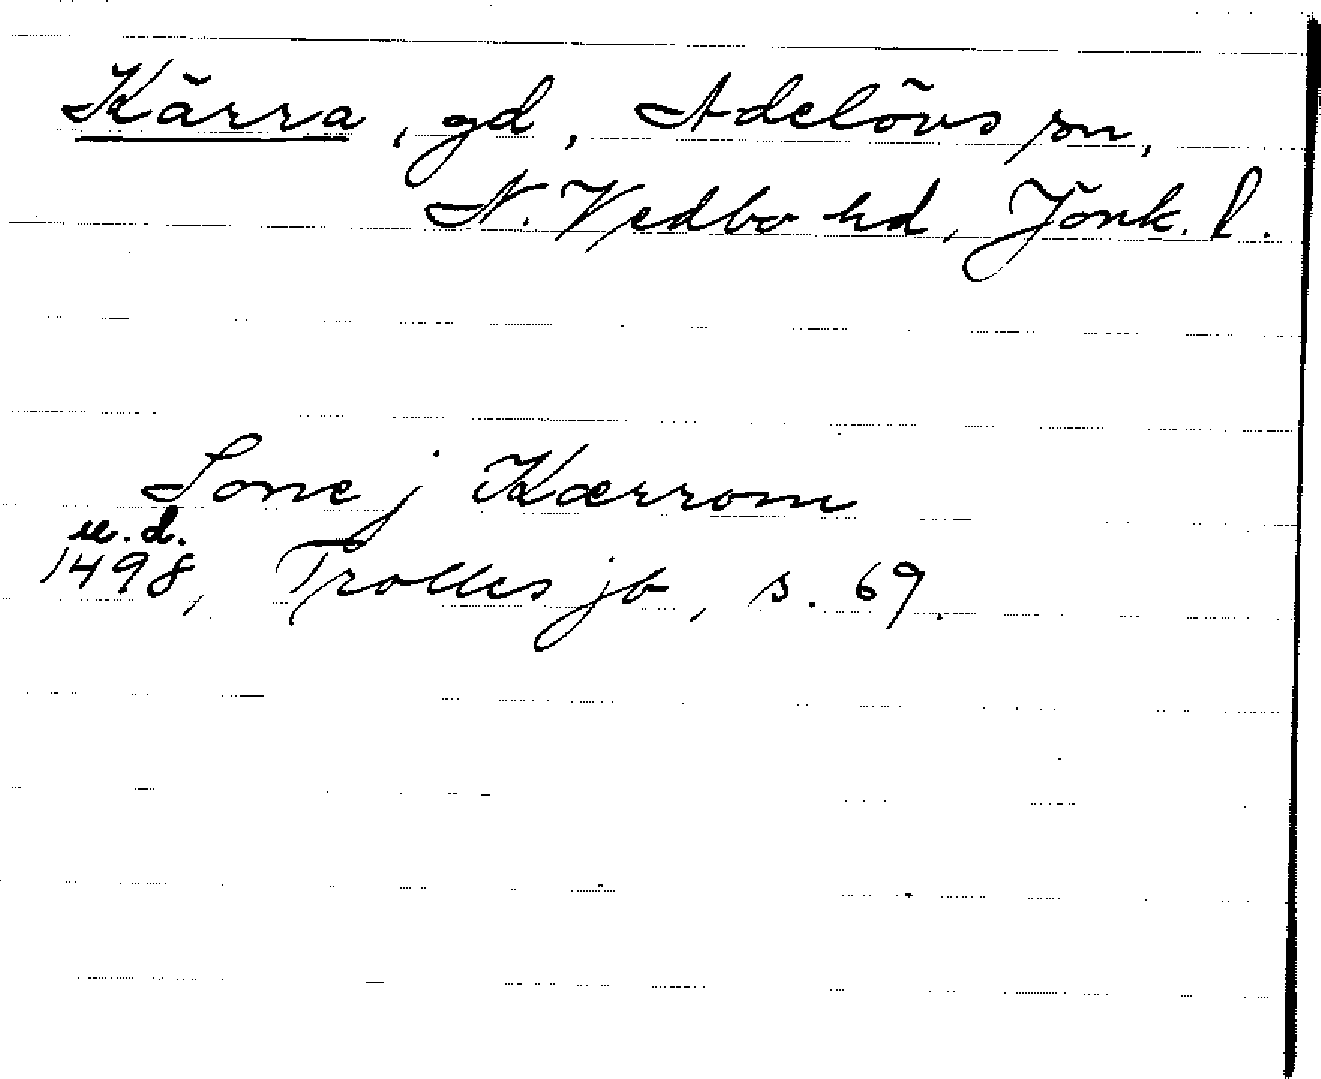 Kärra, gd, Adelövs sn,
N. Vedbo hd, Jönk. l.
Sone j Kærrom
u.d.
1498, Trolles jb, s. 69.